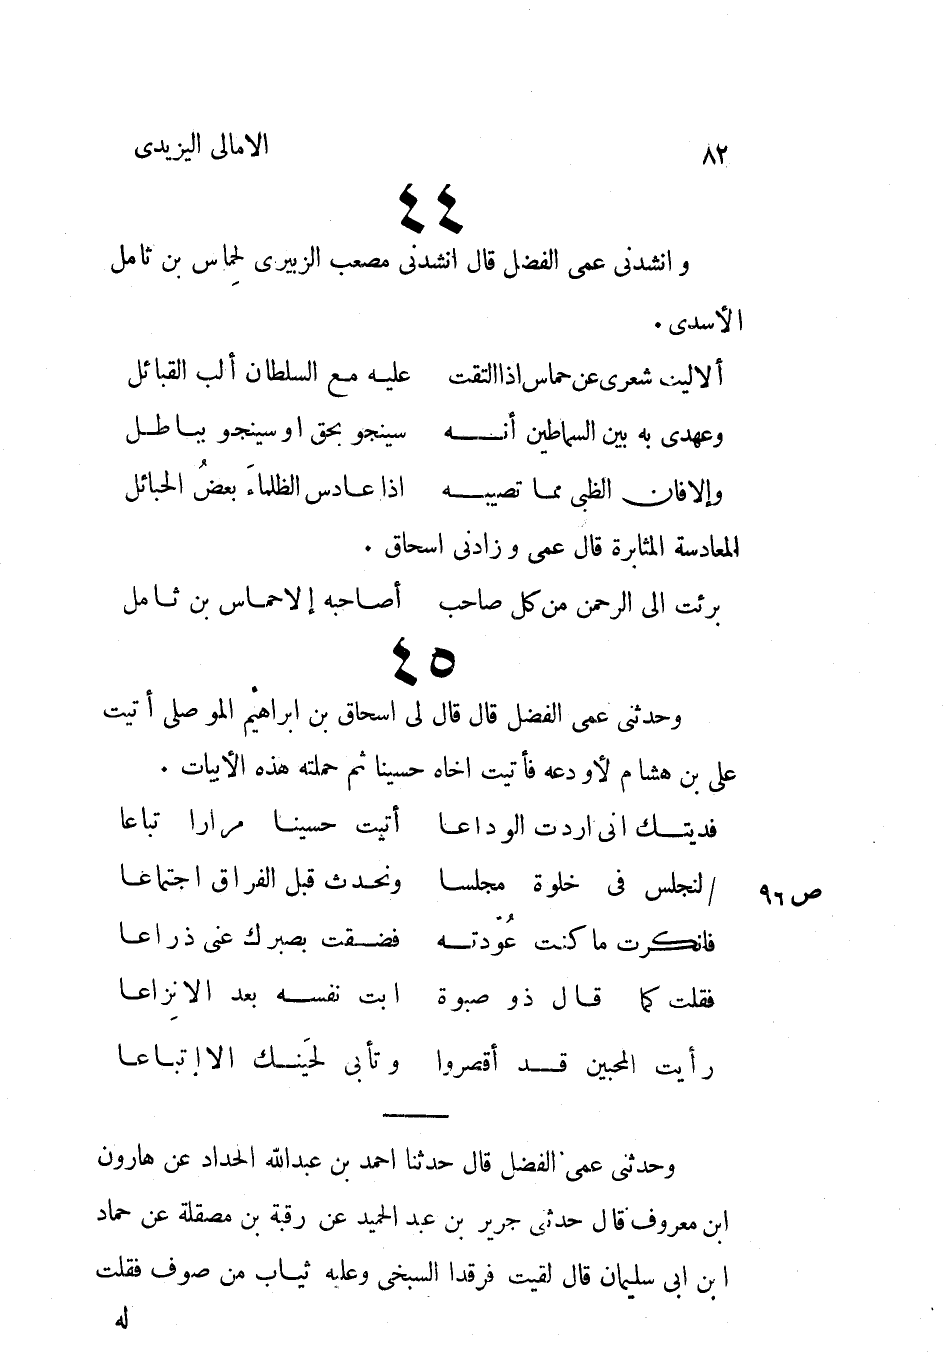 ٨٢ الامالى اليزيدى
٤٤
و انشدنى عمى الفضل قال انشدنى مصعب الزبيرى لحِماس بن ثامل
الأسدى .
ألاليت شعرى عن حماس اذا التقت عليه مع السلطان ألب القبائل
وعهدى به بين السماطين أنه سينجو بحق او سينجو بباطل
وإلا فان الظبى مما تصيبه اذا عادس الظلماءَ بعضُ الحبائل
المعادسة المثابرة قال عمى و زادنى اسحاق .
برئت الى الرحمن من كل صاحب أصاحبه إلا حماس بن ثامل
٤٥
وحدثنى عمى الفضل قال قال لى اسحاق بن ابراهيم الموصلى أتيت
على بن هشام لأودعه فأتيت اخاه حسينا ثم حملته هذه الأبيات .
فديتك انى اردت الوداعا أتيت حسينا مرارا تباعا
/ لنجلس فى خلوة مجلسا ونحدث قبل الفراق اجتماعا ص ٩٦
فانكرت ما كنت عُوّدته فضقت بصبرك عنى ذراعا
فقلت كما قال ذو صبوة ابت نفسه بعد الا نِزاعا
رأيت المحبين قد أقصروا وتأبى لحَينك الا إتباعا
وحدثنى عمى الفضل قال حدثنا احمد بن عبدالله الحداد عن هارون
ابن معروف قال حدثنى جرير بن عبد الحميد عن رقبة بن مصقلة عن حماد
ابن ابى سليمان قال لقيت فرقدا السبخى وعليه ثياب من صوف فقلت
له